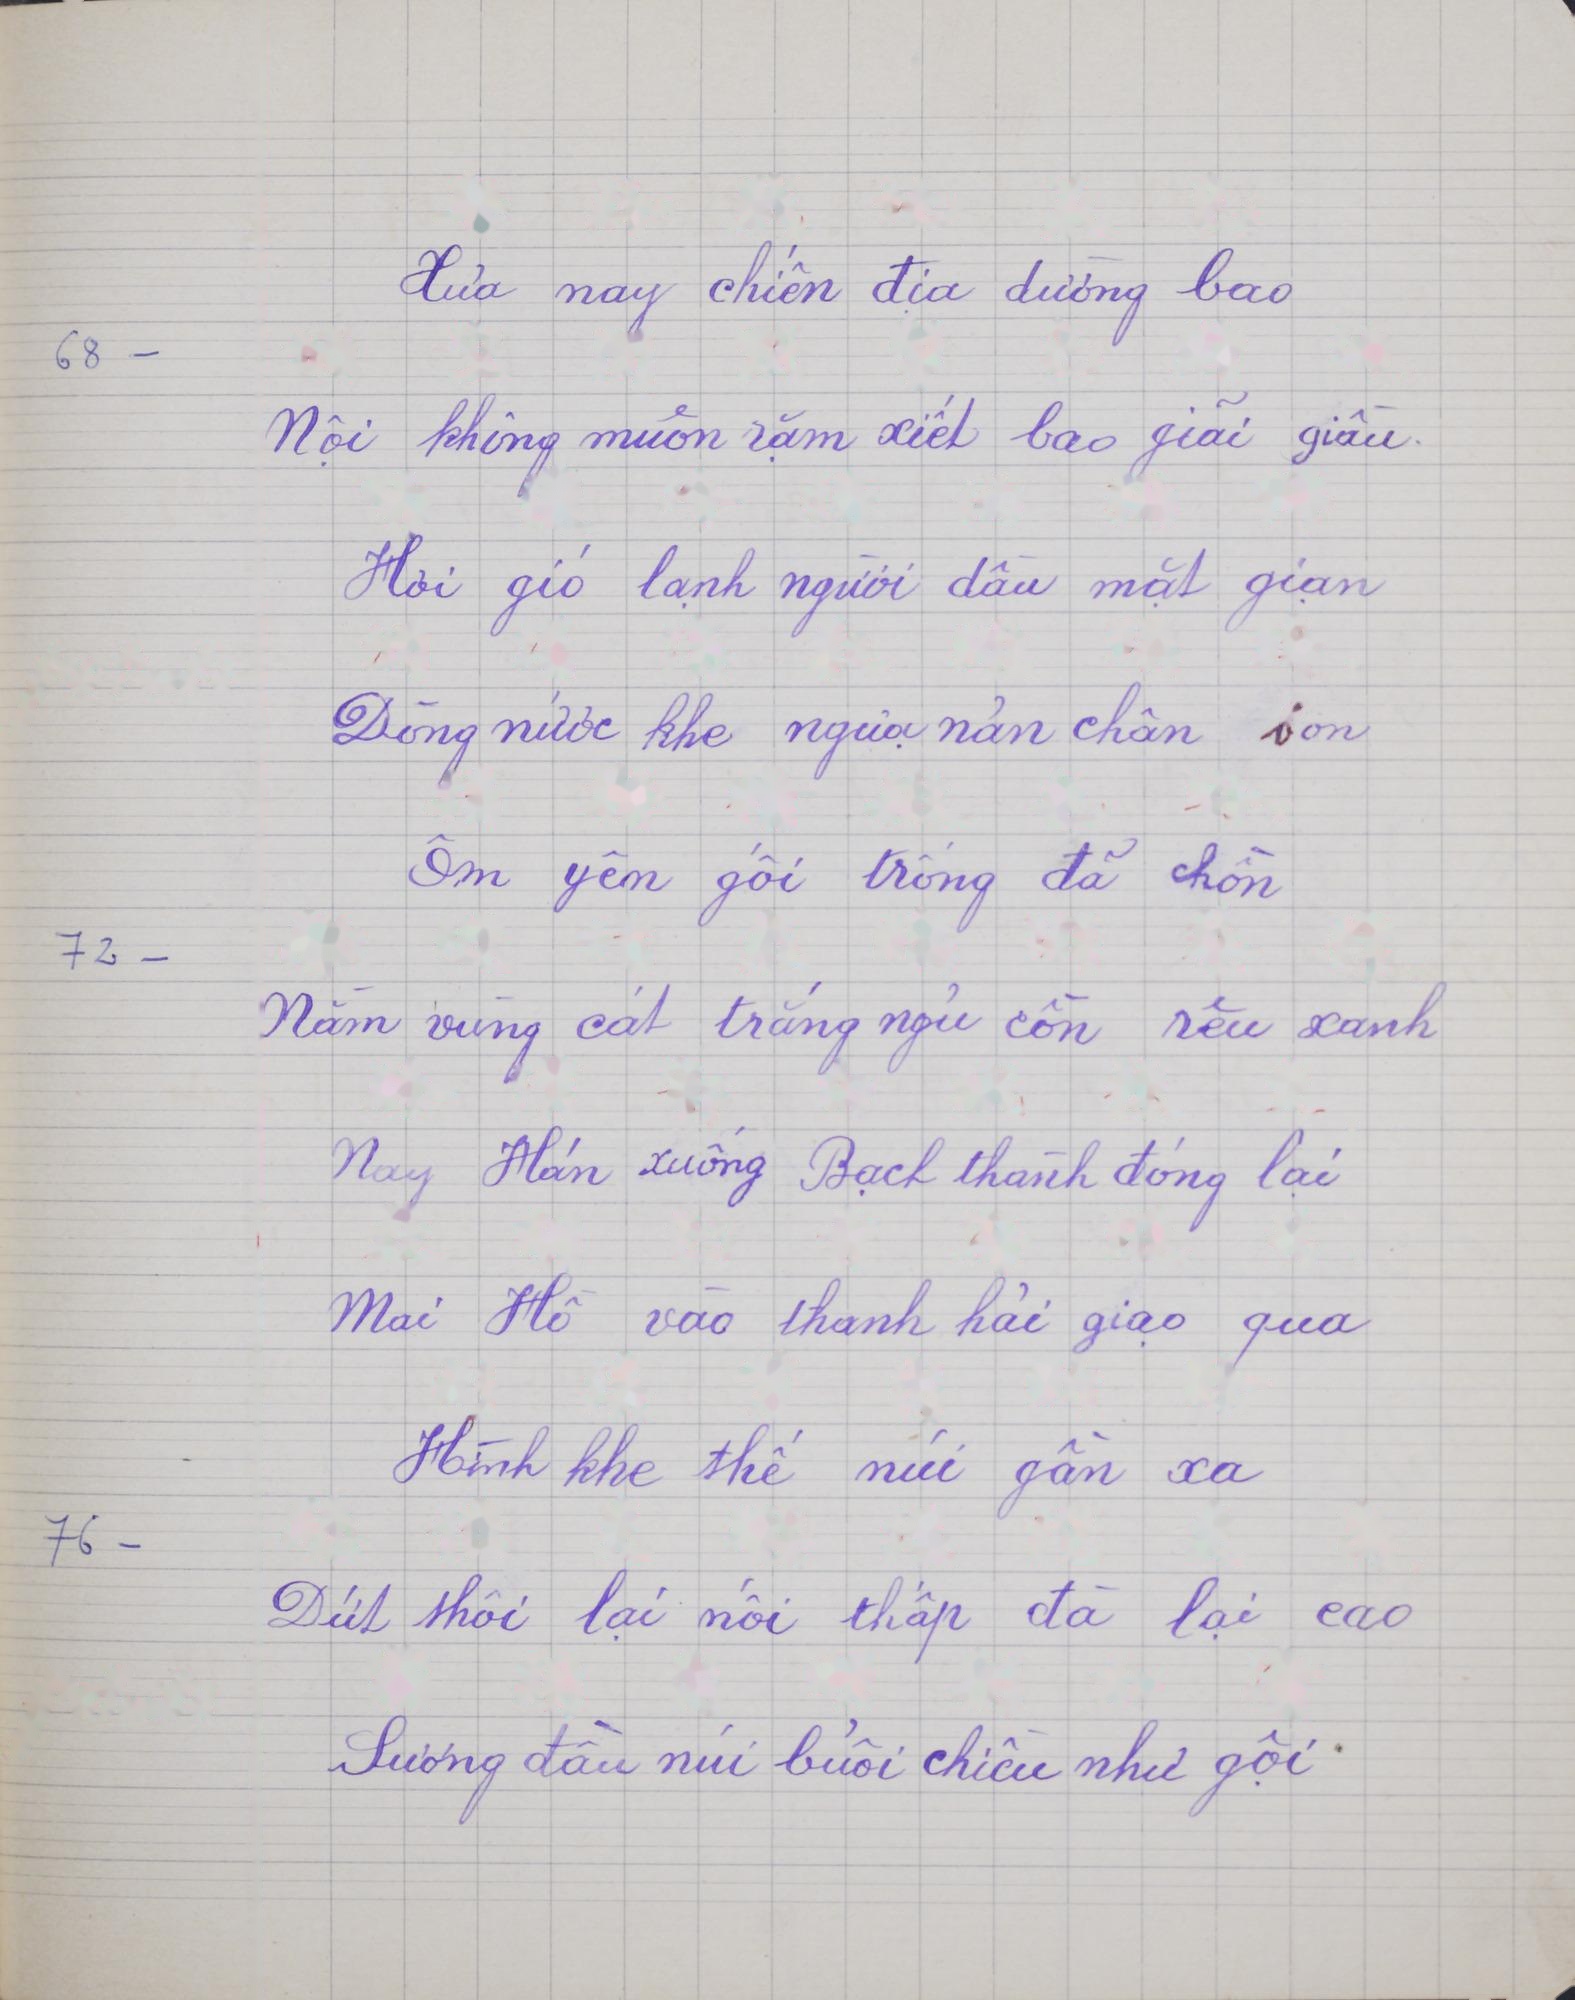 Xưa nay chiến địa dường bao
68 -
Nội không muôn rặm xiết bao giãi giầu.
Hơi gió lạnh người dầu mặt giạn
Dòng nước khe ngựa nản chân bon
Ôm yên gối trống đã chồn
72 -
Nằm vùng cát trắng ngủ cồn rêu xanh
Nay Hán xuống Bạch thành đóng lại
Mai Hồ vào thanh hải giạo qua
Hình khe thế núi gần xa
76 -
Dứt thôi lại nối thấp đà lại cao
Sương đầu núi buổi chiều như gội